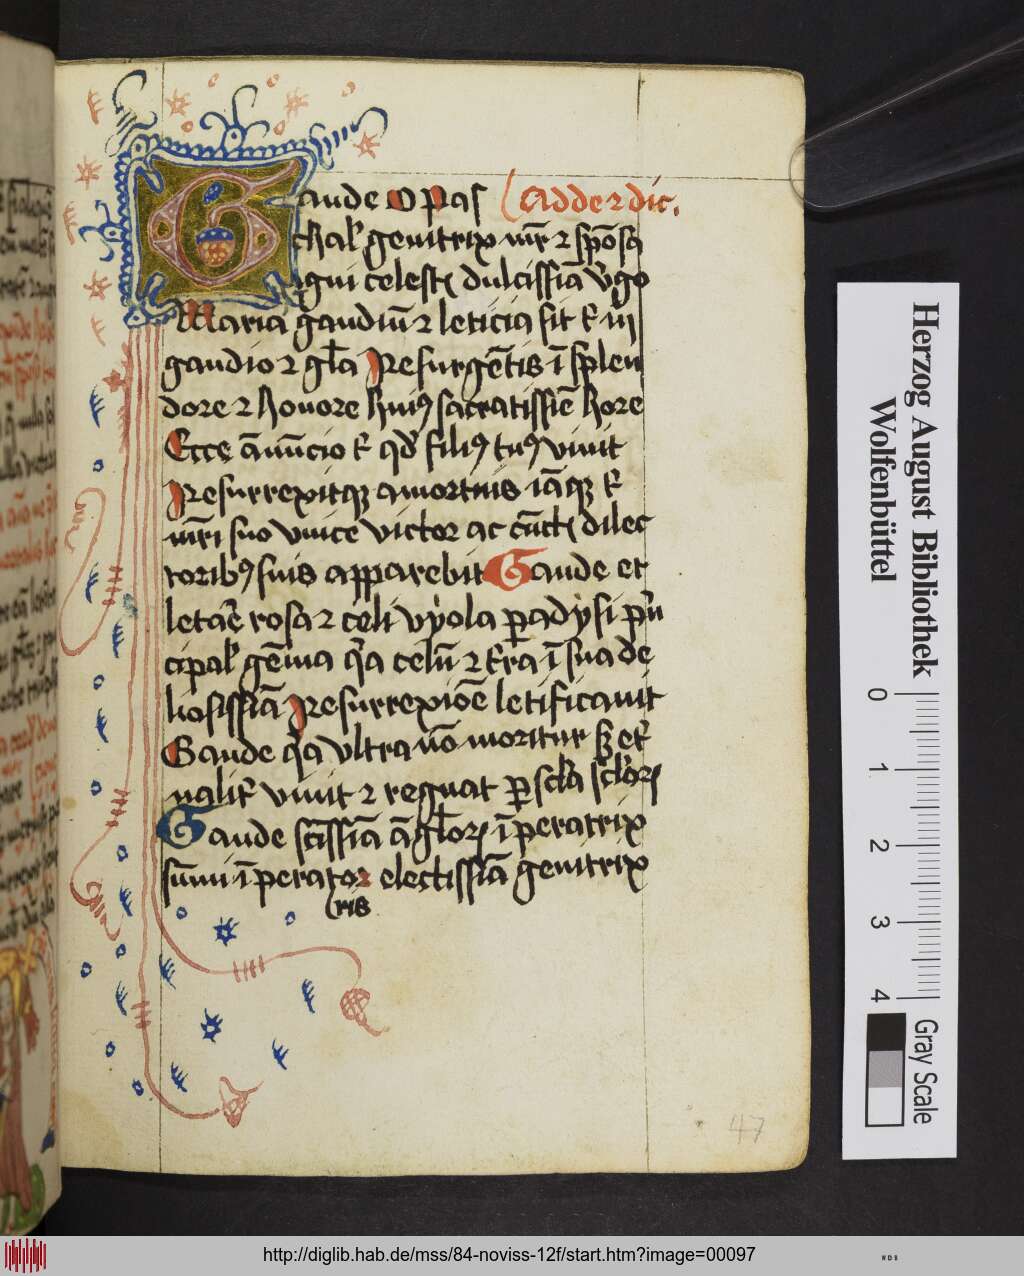 Gaude o pas Adde2dic.
chal' genitrix mr̄ ⁊ spōsa
igni celest dulcissīa v'go
Maria gaudiū ⁊ leticia sit t' in
gaudio ⁊ gl̄a Resurgētis ī splen
dore ⁊ honore huiꝰ sacratissīe hore
Ecce ānūcio t' qd' filiꝰ tuꝰ viuit
Resurrexitqꝫ a mortuis iāqꝫ t'
mr̄i suo vnice victor ac cūct dilec
toribꝰ suis apparebit Gaude et
letare rosa ⁊ celi vyola ꝑadysi p'n
cipal' gēma q'a celū ⁊ t'ra ī sua de
liosissīa Resurrexiōe letificauit
Gaude q'a vltra nō moritur sꝫ et'
nalit' viuit ⁊ regnat ꝑ scl'a scl'oꝝ
Gaude sc̄issīa āgl'oꝝ īperatrix
sūmi īperator electissīa genitrix
ris
47
Herzog August Bibliothek
Wolfenbüttel
0 1 2 3 4
Gray Scale
http://diglib.hab.de/mss/84-noviss-12f/start.htm?image=00097